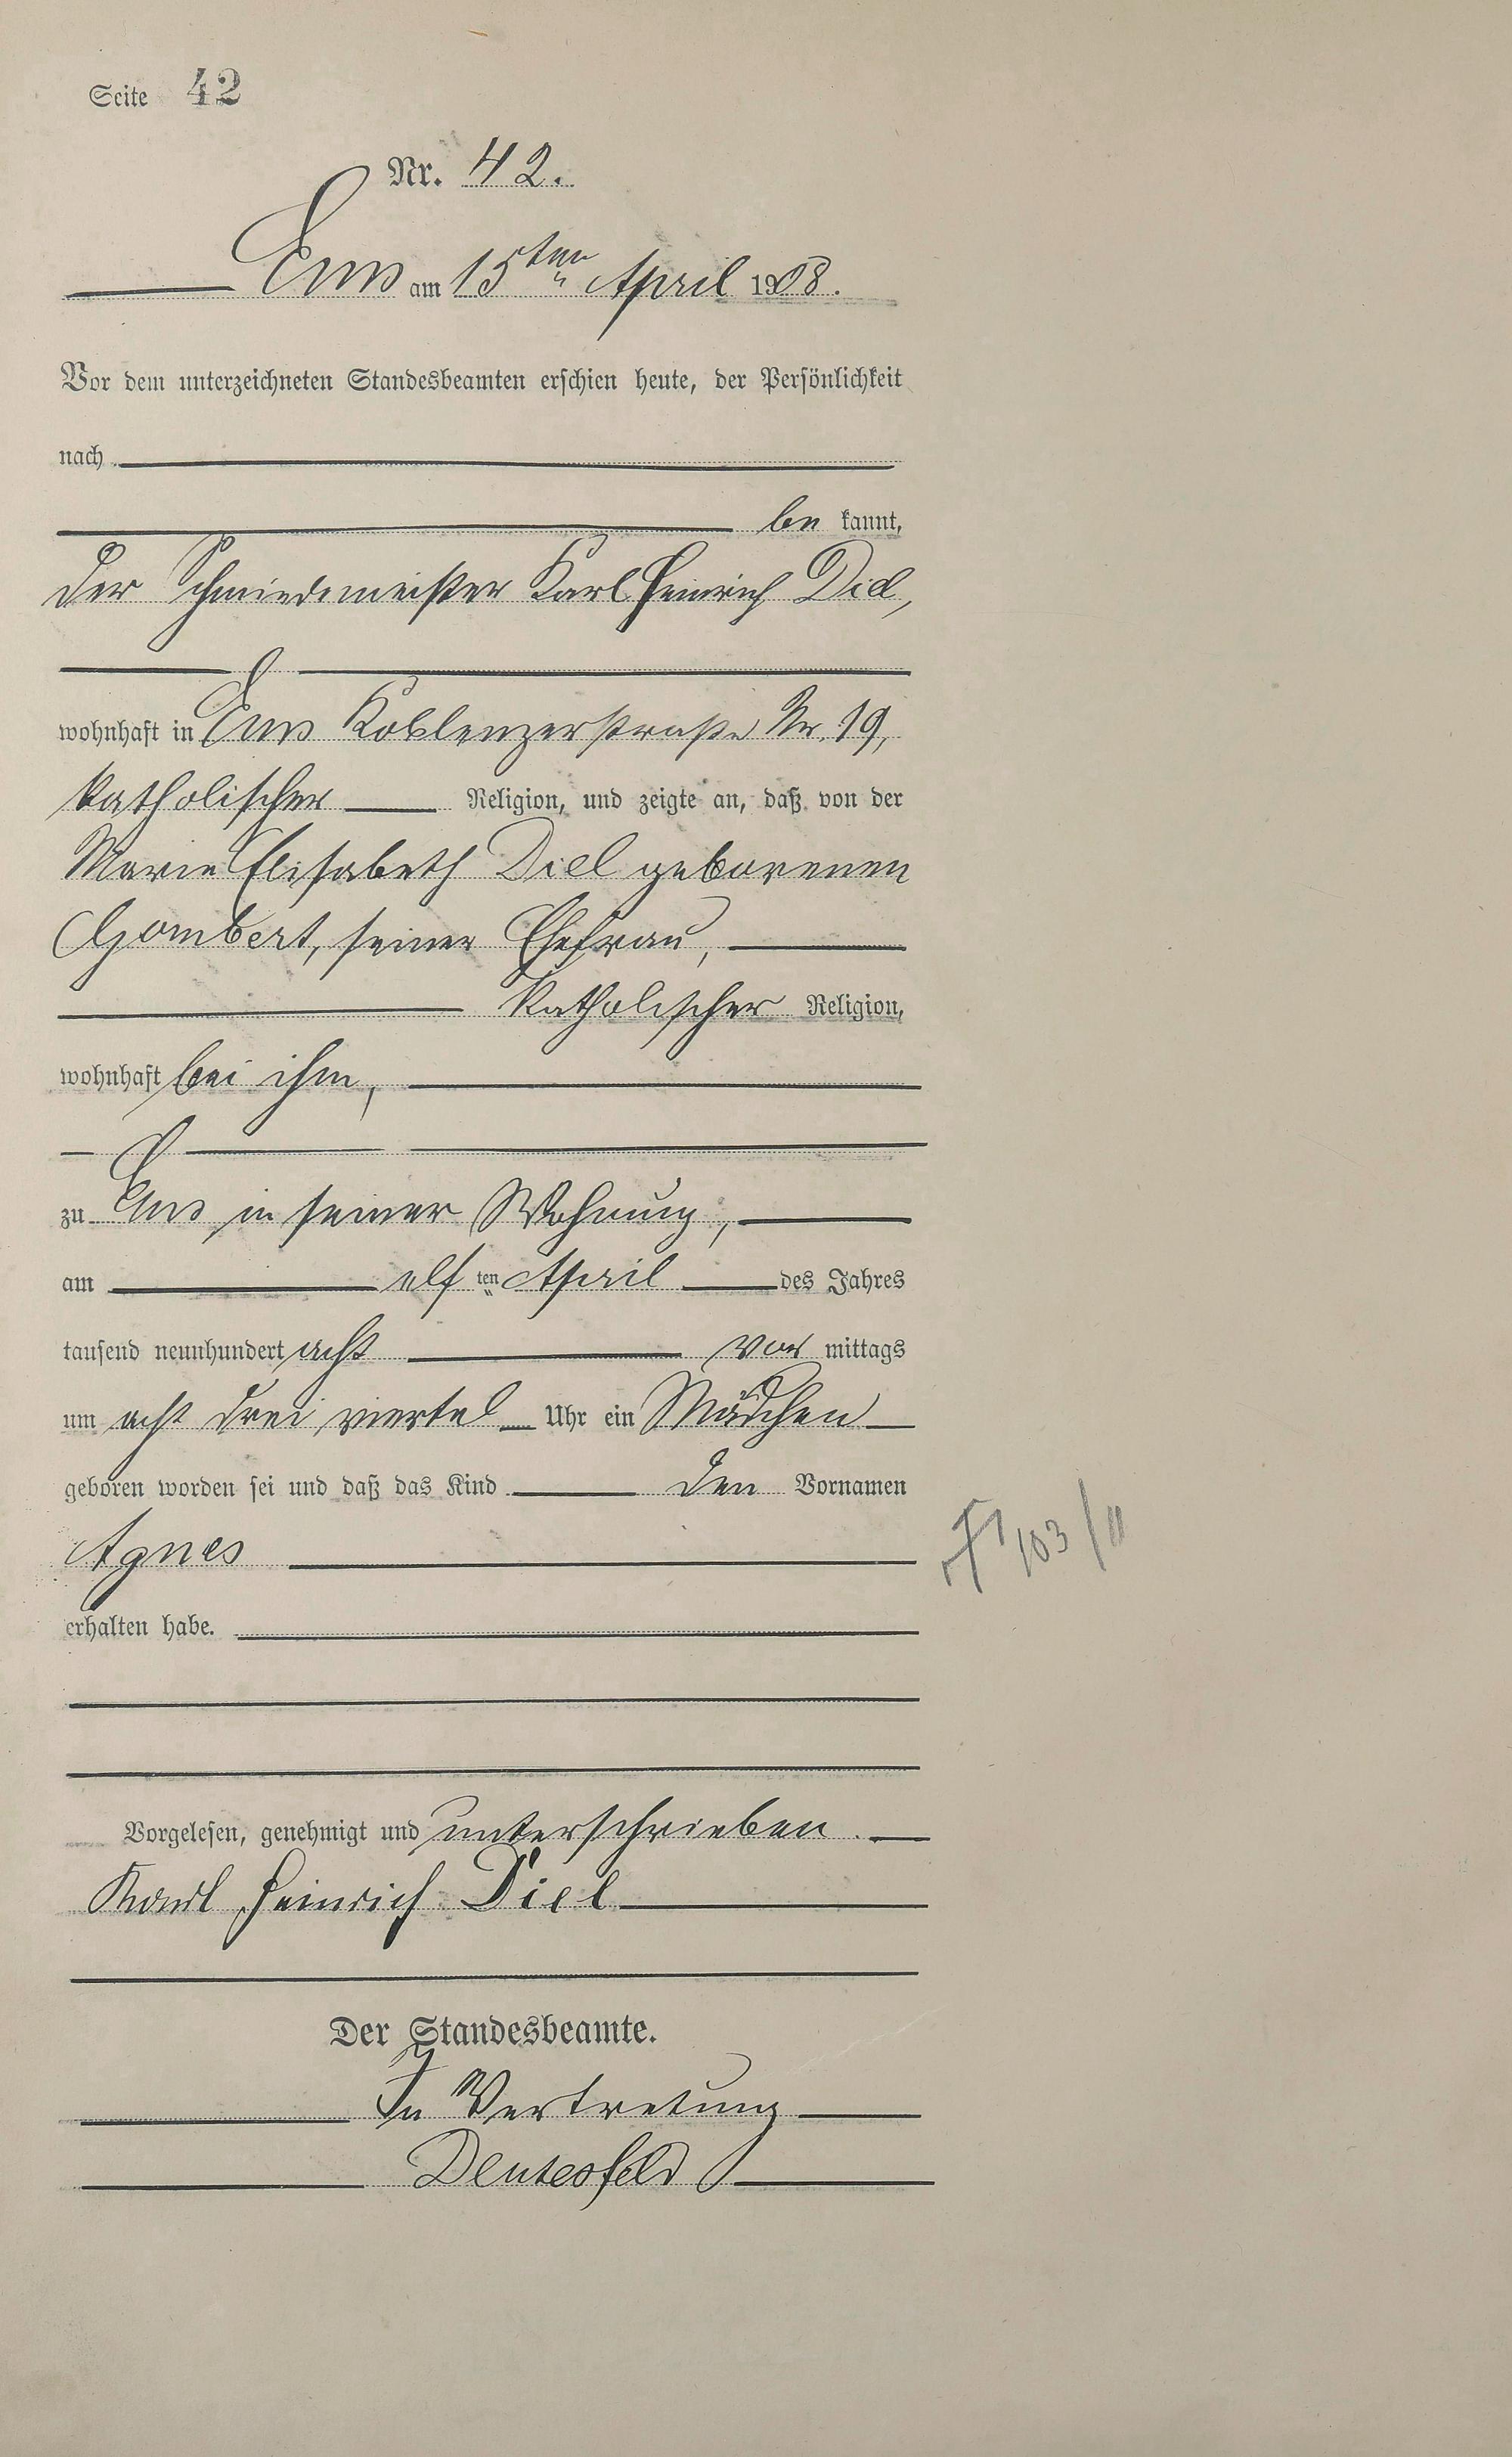 Seite 42
Nr. 42.
Ems am 15ten April 1908.
Vor dem unterzeichneten Standesbeamten erschien heute, der Persönlichkeit
nach
be kannt,
der Schmiedemeister Karl Heinrich Diel,
wohnhaft in Ems Koblenzerstraße Nr. 19,
katholischer Religion, und zeigte an, daß von der
Marie Elisabeth Diel geborenen
Gombert, seiner Ehefrau,
katholischer Religion,
wohnhaft bei ihm,
zu Ems in seiner Wohnung,
am elf ten April des Jahres
tausend neunhundert acht vor mittags
um acht drei viertel Uhr ein Mädchen
geboren worden sei und daß das Kind den Vornamen
Agnes
erhalten habe.
Vorgelesen, genehmigt und unterschrieben.
Karl Heinrich Diel
Der Standesbeamte.
In Vertretung